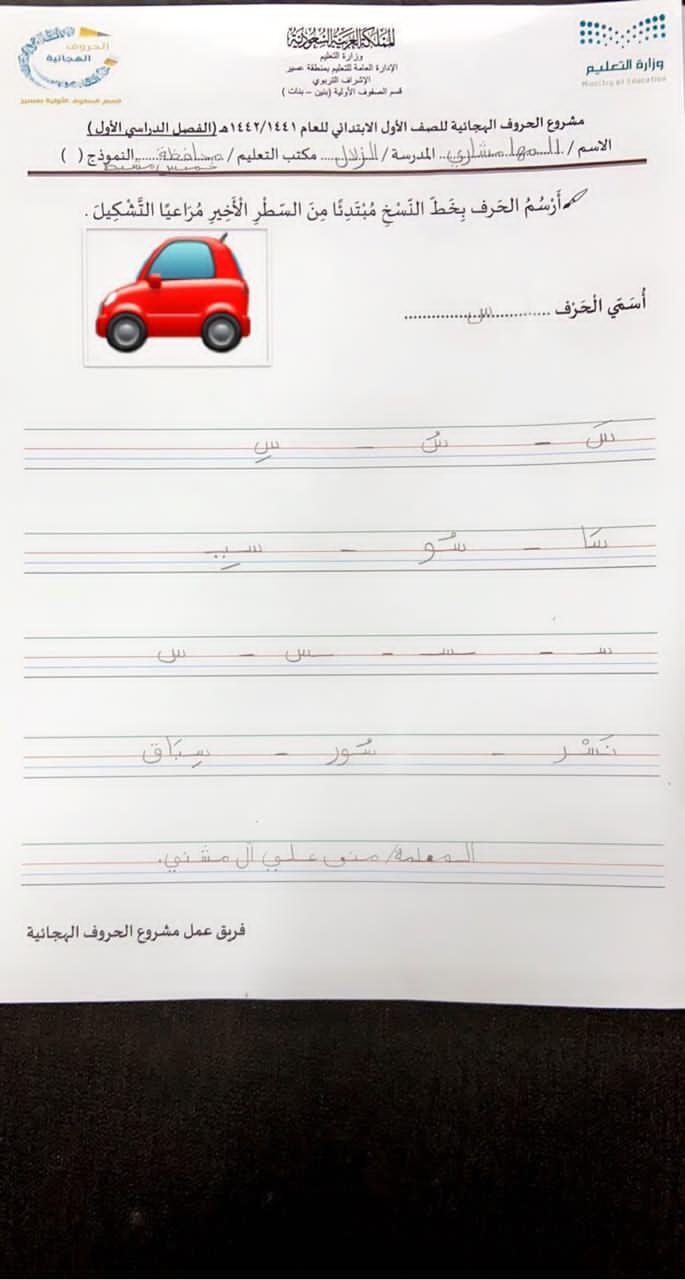 الحروف
الهجائية
قسم الصفوف الأولية بعسير
المملكة العربية السعودية
وزارة التعليم
الإدارة العامة للتعليم بمنطقة عسير
الإشراف التربوي
قسم الصفوف الأولية (بنين – بنات )
وزارة التعليم
Ministry of Education
مشروع الحروف الهجائية للصف الأول الابتدائي للعام ١٤٤٢/١٤٤١هـ (الفصل الدراسي الأول)
الاسم / المها مشاري المدرسة / الزلال مكتب التعليم / محافظة خميس مشيط النموذج ( )
أَرْسُمُ الحَرف بِخَطّ النَسْخِ مُبْتَدِئًا مِنَ السّطْرِ الْأَخِيرِ مُرَاعيًا التَّشْكِيلَ .
أُسَمّي الْحَرْف س
سَ – سُ – سِ
سَا – سُو – سِيـ
سـ – ـسـ – ـس – س
نَسْر – سُور – سِبَاق
المعلمة/ منى علي آل مشني.
فريق عمل مشروع الحروف الهجائية